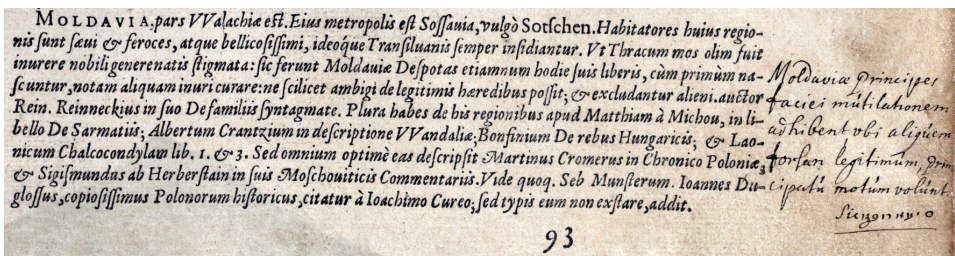 MOLDAVIA, pars VValachiæ est. Eius metropolis est Sossauia, vulgò Sotschen. Habitatores huius regio-
nis sunt sæui & feroces, atque bellicosissimi, ideoque Transiluanis semper insidiantur. Vt Thracum mos olim fuit
inurere nobili generenatis stigmata: sic ferunt Moldauiæ Despotas etiamnum hodie suis liberis, cùm primùm na-
scuntur, notam aliquam inuri curare: ne scilicet ambigi de legitimis hæredibus possit; & excludantur alieni. auctor
Rein. Reinneckius in suo De familiis syntagmate. Plura habes de his regionibus apud Matthiam à Michou, in li-
bello De Sarmatiis; Albertum Crantzium in descriptione VVandaliæ; Bonfinium De rebus Hungaricis; & Lao-
nicum Chalcocondylam lib. 1. & 3. Sed omnium optimè eas descripsit Martinus Cromerus in Chronico Poloniæ,
& Sigismundus ab Herberstain in suis Moschouiticis Commentariis. Vide quoq. Seb Munsterum. Ioannes Du-
glossus, copiosissimus Polonorum historicus, citatur à Ioachimo Cureo; sed typis eum non exstare, addit.
93
Moldaviæ Principes
faciei mutilationem
adhibent ubi aliquem
forsan legitimum, prin
cipatu motum volunt.